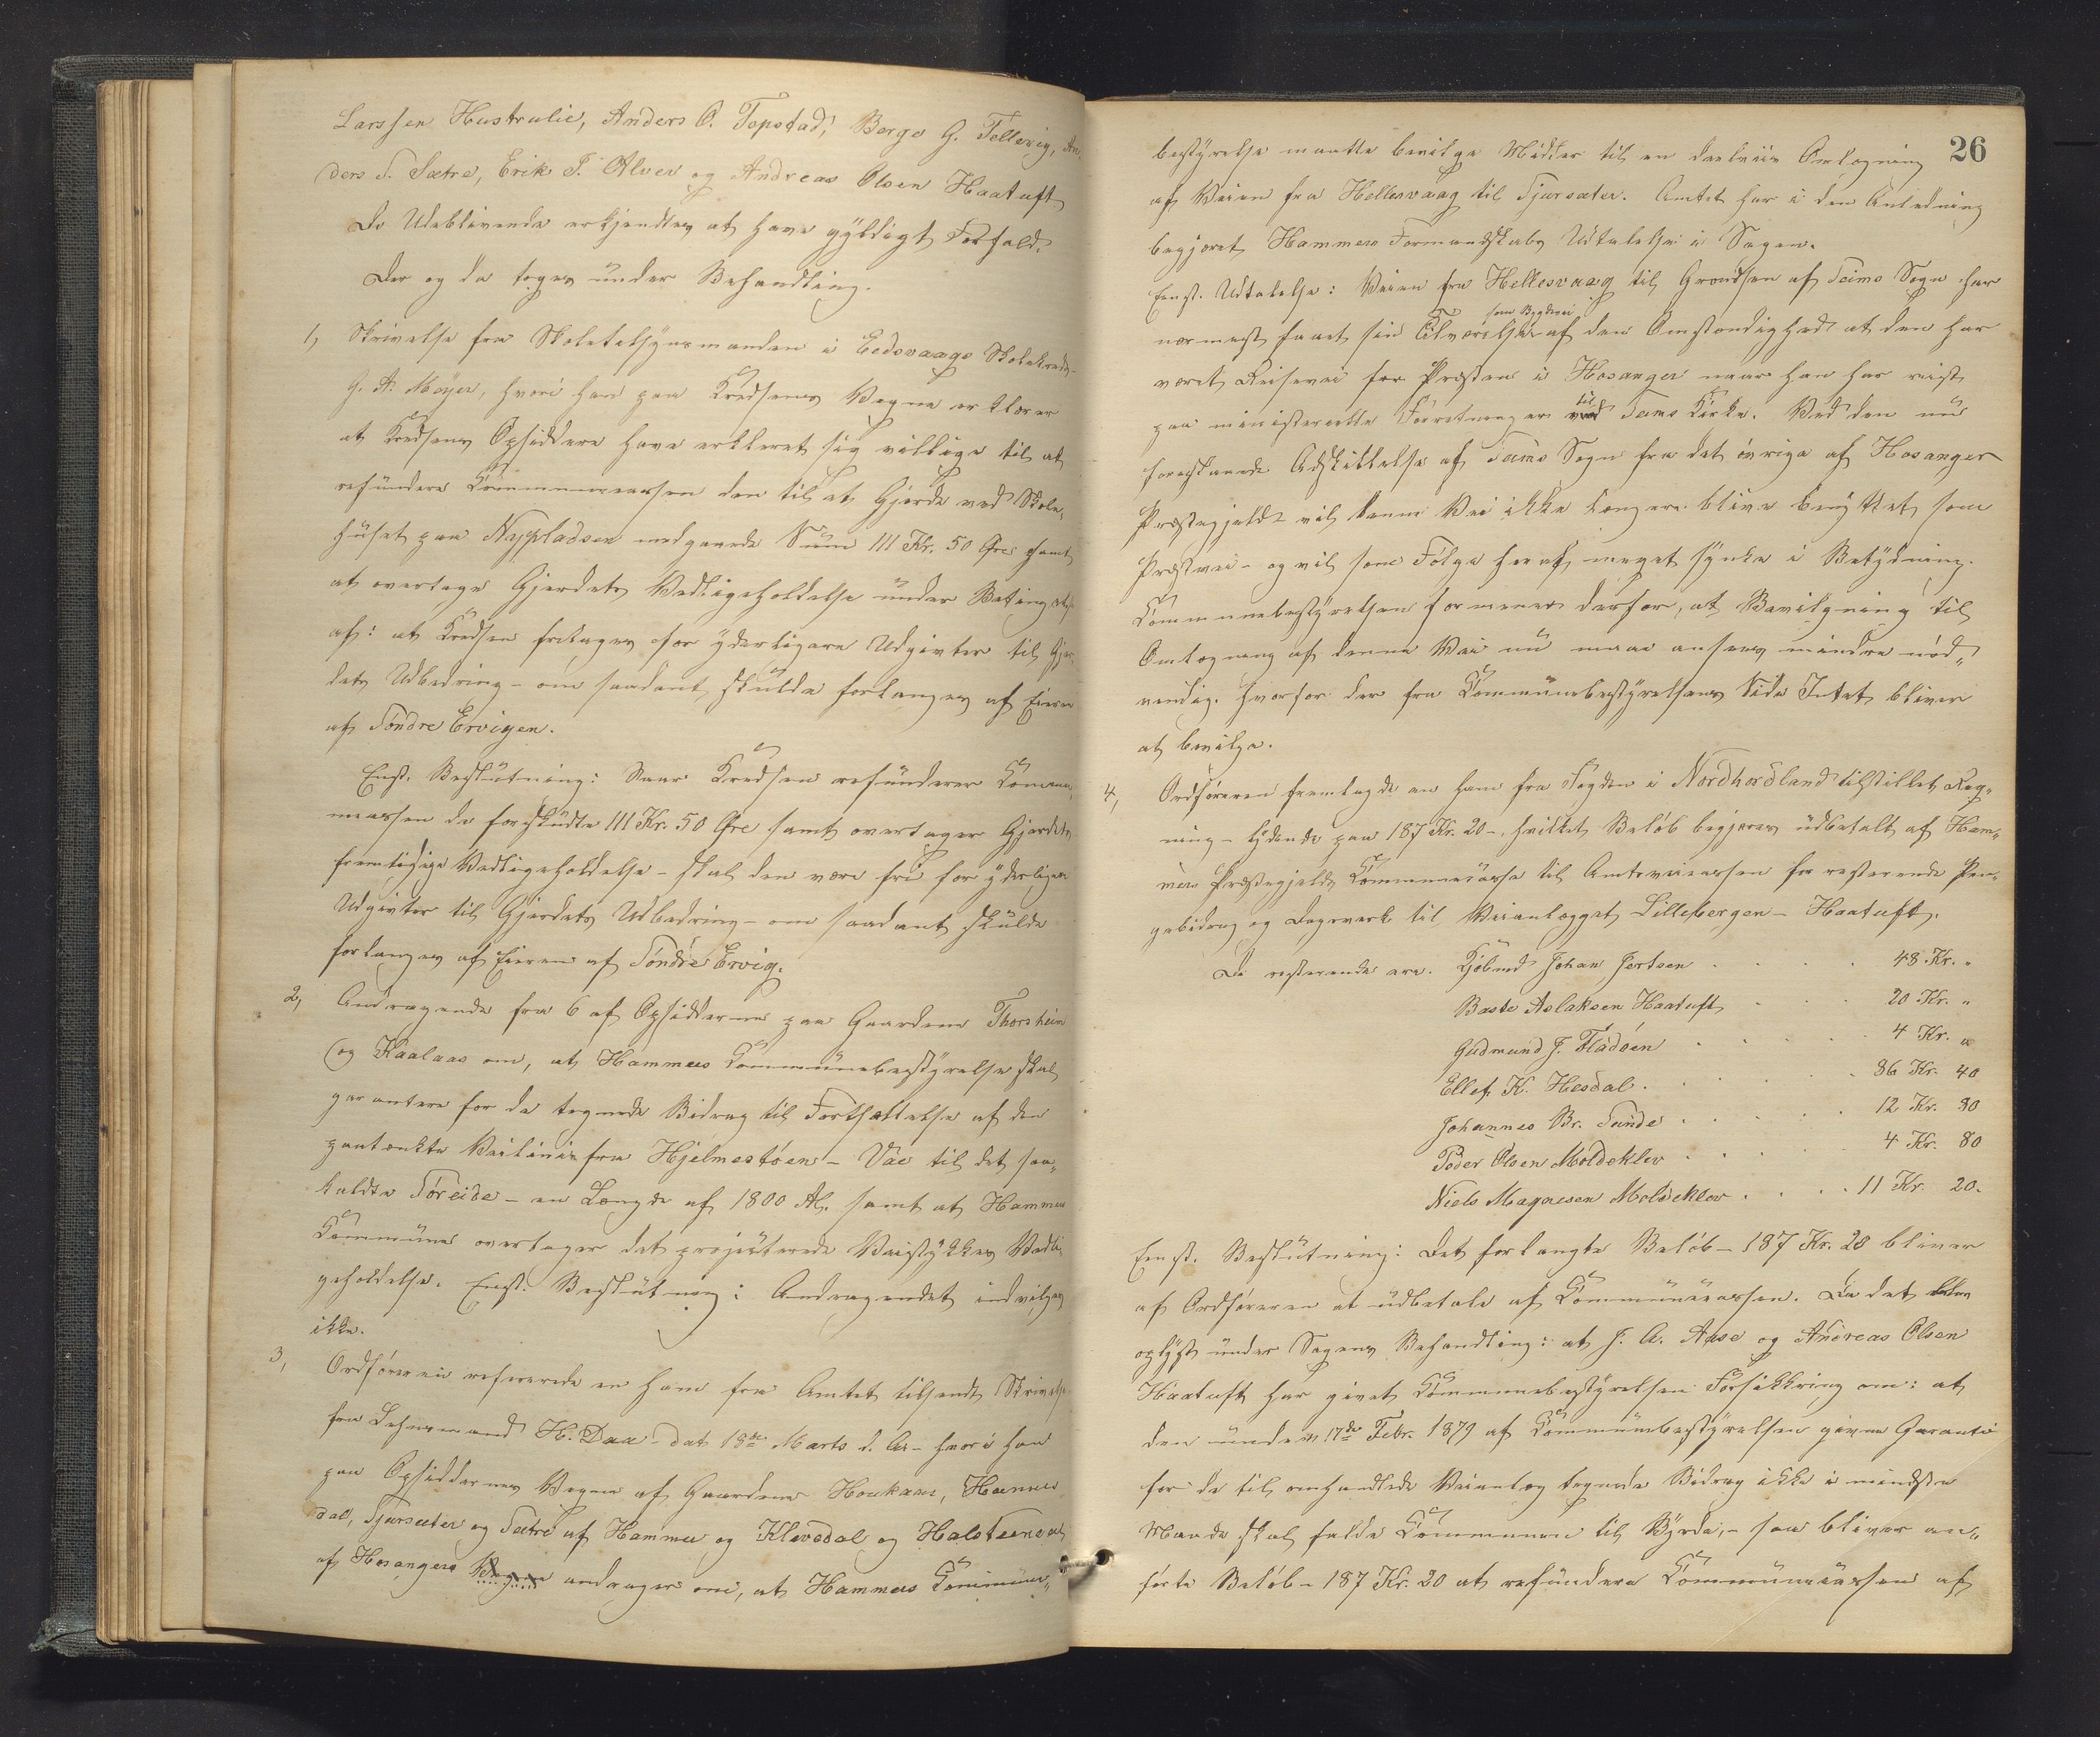 Larssen Hustrulie, Anders O. Topstad, Børge G. Tellevig, An-
ders S. Sætre, Erik I. Alver og Andreas Olsen Haatuft
De Udeblivende erkjendtes at have gyldigt Forfald.
Der og da toges under Behandling.
1, Skrivelse fra Skoletilsynsmanden i Eedsvaags Skolekreds –
G. A. Meyer, hvori han paa Kredsens Vegne erklærer
at Kredsens Opsiddere have erklæret sig villige til at
refundere Communecassen den til et Gjerde ved Skole-
huset paa Nypladsen medgaaede Sum 111 Kr. 50 Øre samt
at overtage Gjerdets Vedligeholdelse under Betingelse
af: at Kredsen fritages for yderligere Udgivter til Gjer-
dets Udbedring – om saadant skulde forlanges af Eieren
af Søndre Ervigen.
Enst. Beslutning: Naar Kredsen refunderer Commu-
necassen de forskudte 111 Kr. 50 Øre samt overtager Gjerdets
fremtidige Vedligeholdelse – skal den være fri for yderligere
Udgivter til Gjerdets Udbedring – om saadant skulde
forlanges af Eieren af Søndre Ervig.
2, Andragende fra 6 af Opsidderne paa Gaardene Thorsheim
og Kaalaas om, at Hammers Communebestyrelse skal
garantere for de tegnede Bidrag til Fortsættelse af den
paatænkte Veilinie fra Hjelmestøen – Våe til det saa-
kaldte Søreide – en Længde af 1800 Al. samt at Hammers
Commune overtager det projecterede Veistykkes Vedli-
geholdelse. Enst. Beslutning: Andragendet indvilges
ikke.
3, Ordføreren refererede en ham fra Amtet tilsendt Skrivelse
fra Lehnsmand H. Daa – dat 18de Marts d. Ar – hvori han
paa Opsiddernes Vegne af Gaardene Houkaas, Hannis-
dal, Tjursæter og Sætre af Hammer og Klevedal og Halsteensdal
af Hosangers Vegne andrager om, at Hammers Commune-
26
bestyrelse maatte bevilge Midler til en deelviis Omlægning
af Veien fra Hellesvaag til Tjursæter. Amtet har i den Anledning
begjæret Hammers Formandskabs Udtalelse i Sagen.
Enst. Udtalelse: Veien fra Hellesvaag til Grændsen af Seims Sogn har
som Bygdevei
nærmest faaet sin Tilværelse af den Omstændighed at den har
været Reisevei for Præsten i Hosanger naar han har reist
til
paa ministerielle Forretninger ved Seims Kirke. Ved den nu
forestaaende Adskillelse af Seims Sogn fra det øvrige af Hosanger
Præstegjeld vil denne Vei ikke længere blive benyttet som
Præstevei – og vil som Følge heraf meget synke i Betydning.
Communebestyrelsen formener derfor, at Bevilgning til
Omlægning af denne Vei nu maa ansees mindre nød-
vendig. Hvorfor der fra Communebestyrelsens Side Intet bliver
at bevilge.
4, Ordføreren fremlagde en ham fra Fogden i Nordhordland tilstillet Reg-
ning – lydende paa 187 Kr. 20 –, hvilket Beløb begjæres udbetalt af Ham-
mers Præstegjelds Communecasse til Amtsveicassen for resterende Pen-
gebidrag og Dagsværk til Veianlægget Lillebergen – Haatuft.
De resterende ere. Kjøbmd Johan Jertsen . . . . 48 Kr. "
Baste Aslaksen Haatuft . . . 20 Kr. "
Gudmund J. Fladøen . . . . . 4 Kr. "
Ellef K. Hesdal . . . . . 86 Kr. 40
Johannes Br. Tunde . . . . . 12 Kr. 80
Peder Olsen Moldeklev . . . . . 4 Kr. 80
Niels Magnesen Moldeklev . . . . 11 Kr. 20.
Enst. Beslutning: Det forlangte Beløb – 187 Kr. 20 bliver
af Ordføreren at udbetale af Communecassen. Da det blev
oplyst under Sagens Behandling: at J. A. Aase og Andreas Olsen
Haatuft har givet Communebestyrelsen Forsikkring om: at
den under 17de Febr. 1879 af Communebestyrelsen givne Garanti
for de til omhandlede Veianlæg tegnede Bidrag ikke i mindste
Maade skal falde Communen til Byrde, – saa bliver an-
førte Beløb – 187 Kr. 20 at refundere Communecassen af